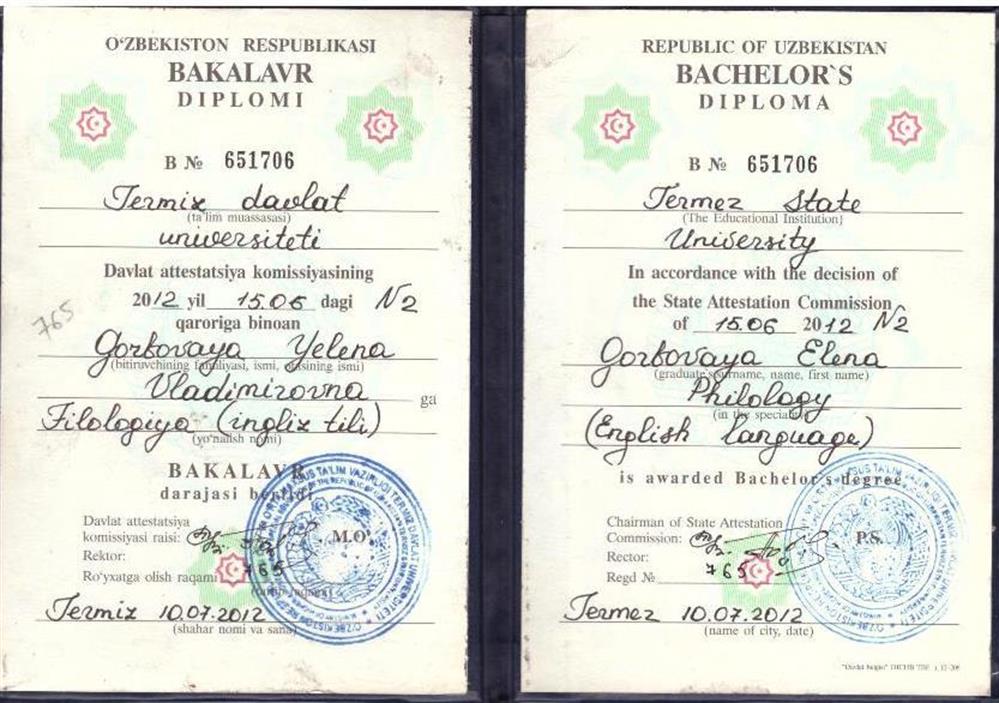 O‘ZBEKISTON RESPUBLIKASI
BAKALAVR
DIPLOMI
B № 651706
Termiz davlat
(ta'lim muassasasi)
universiteti
Davlat attestatsiya komissiyasining
2012 yil 15.06 dagi N2
qaroriga binoan
Gorbovaya Yelena
(bitiruvchining familiyasi, ismi, otasining ismi)
Vladimirovna ga
Filologiya (ingliz tili)
(yo‘nalish nomi)
BAKALAVR
darajasi berildi
Davlat attestatsiya
komissiyasi raisi:
M.O‘.
Rektor:
Ro‘yxatga olish raqami 765
Termiz 10.07.2012
(shahar nomi va sana)
765
REPUBLIC OF UZBEKISTAN
BACHELOR`S
DIPLOMA
B № 651706
Termez State
(The Educational Institution)
University
In accordance with the decision of
the State Attestation Commission
of 15.06 2012 N2
Gorbovaya Elena
(graduate's surname, name, first name)
Philology
(in the speciality)
(English language)
is awarded Bachelor's degree
Chairman of State Attestation
Commission:
P.S.
Rector:
Regd № 765
Termez 10.07.2012
(name of city, date)